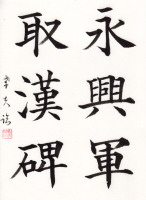 永興軍
取漢碑